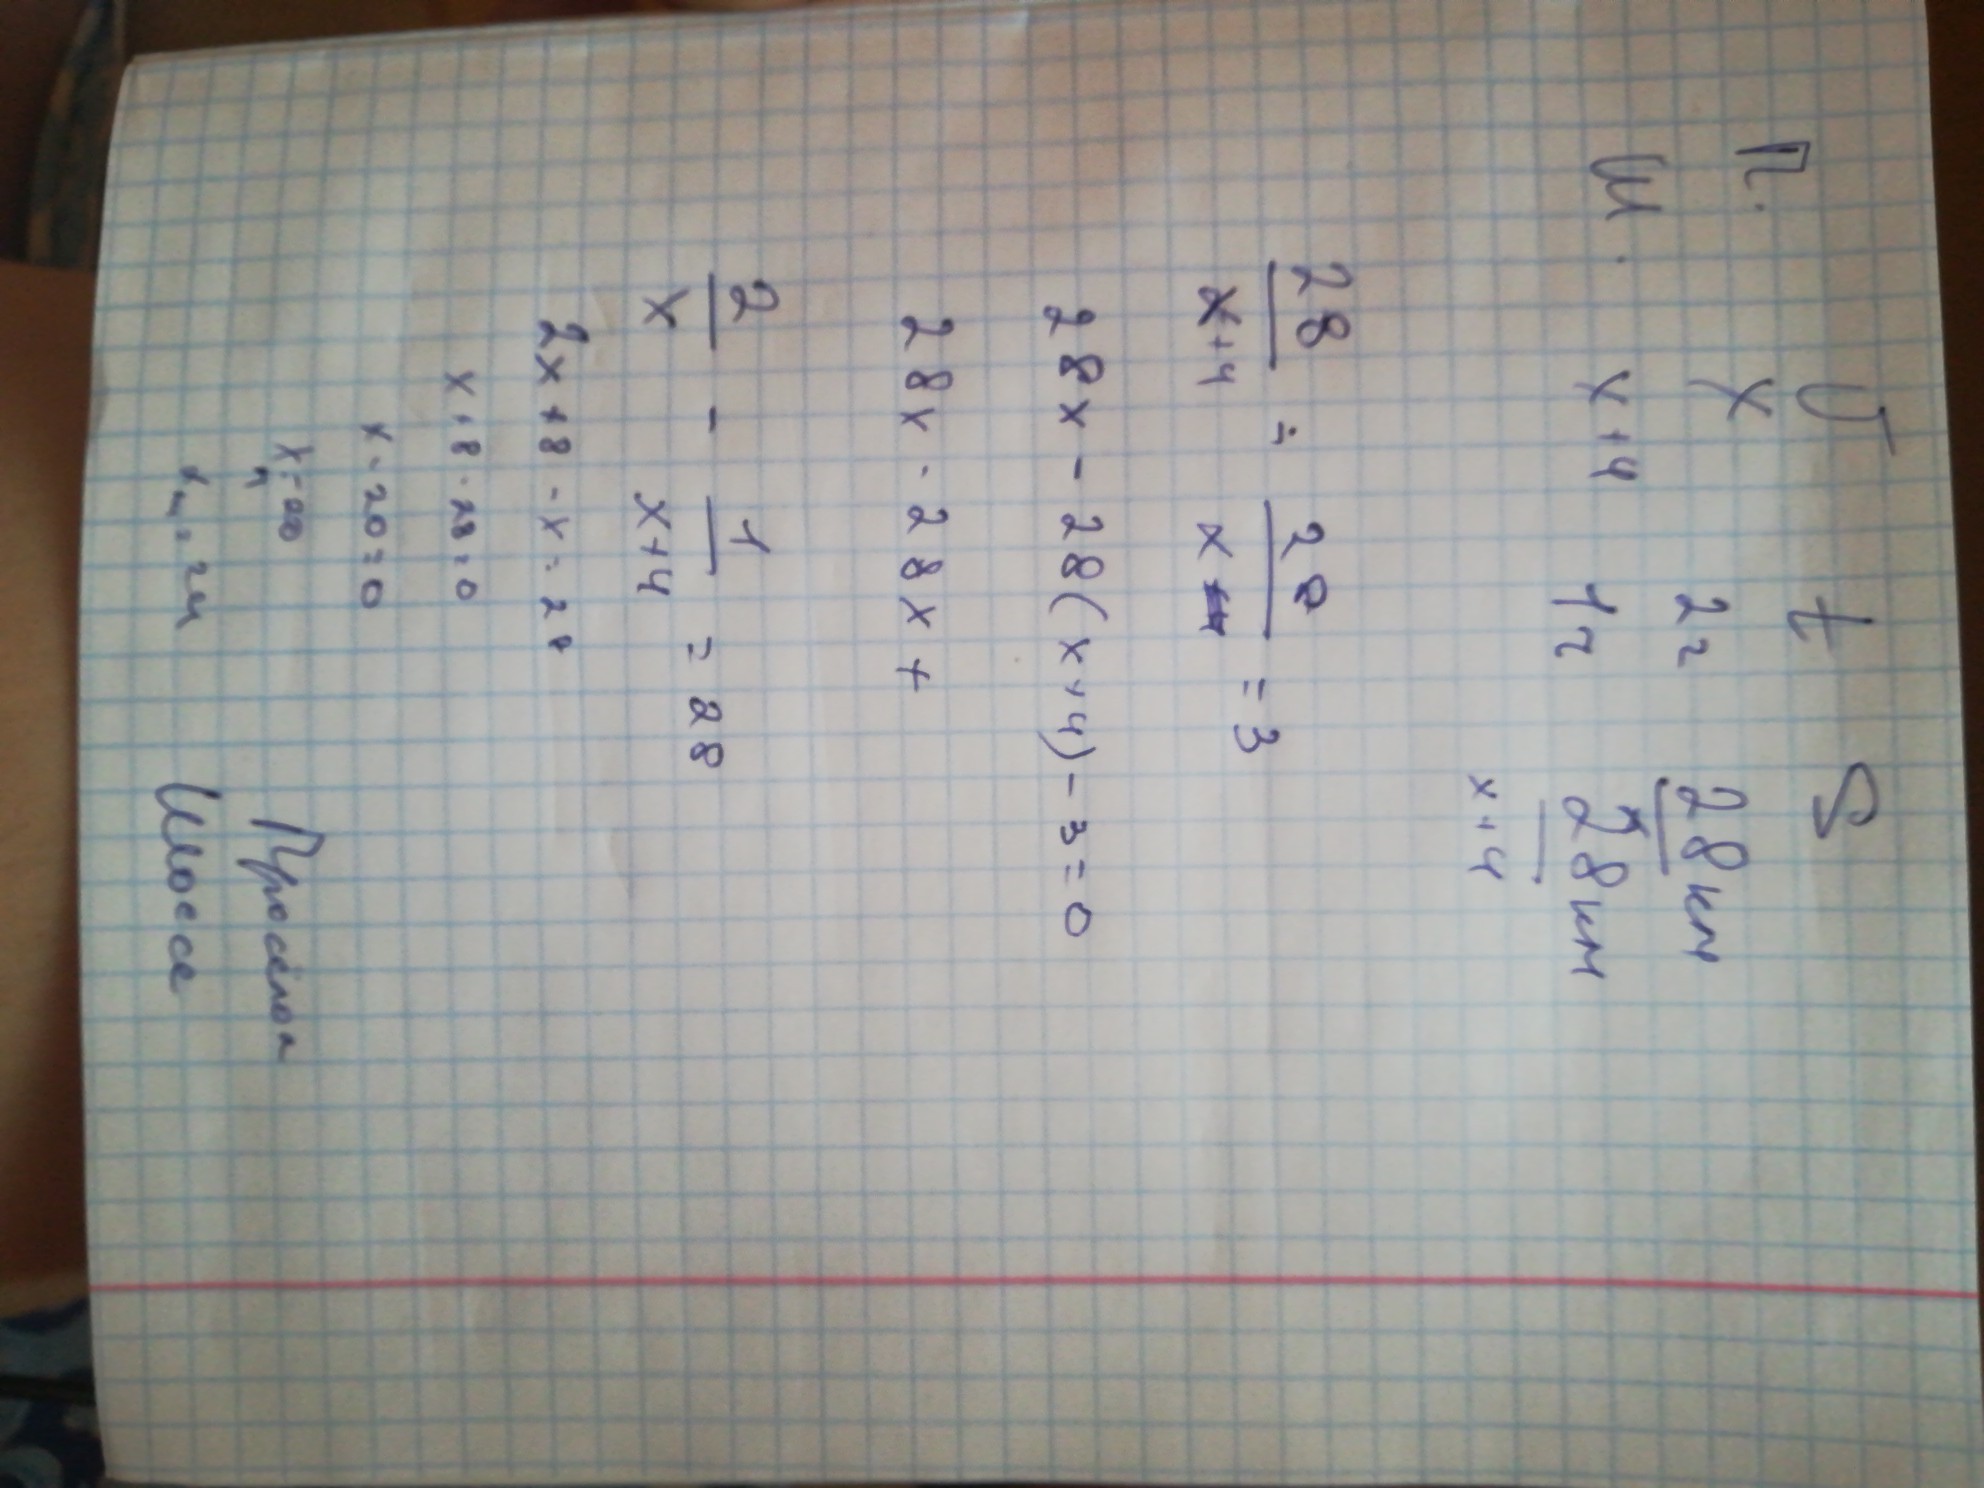 V t S
П. x 2ч 28км
Ш. x+4 1ч 28км
x+4
28/x+4 = 28/x = 3
28x - 28(x+4) - 3 = 0
28x - 28x +
2/x - 1/x+4 = 28
2x + 8 - x = 28
x + 8 - 28 = 0
x - 20 = 0
xп = 20 Просёлок
xш = 24 Шоссе